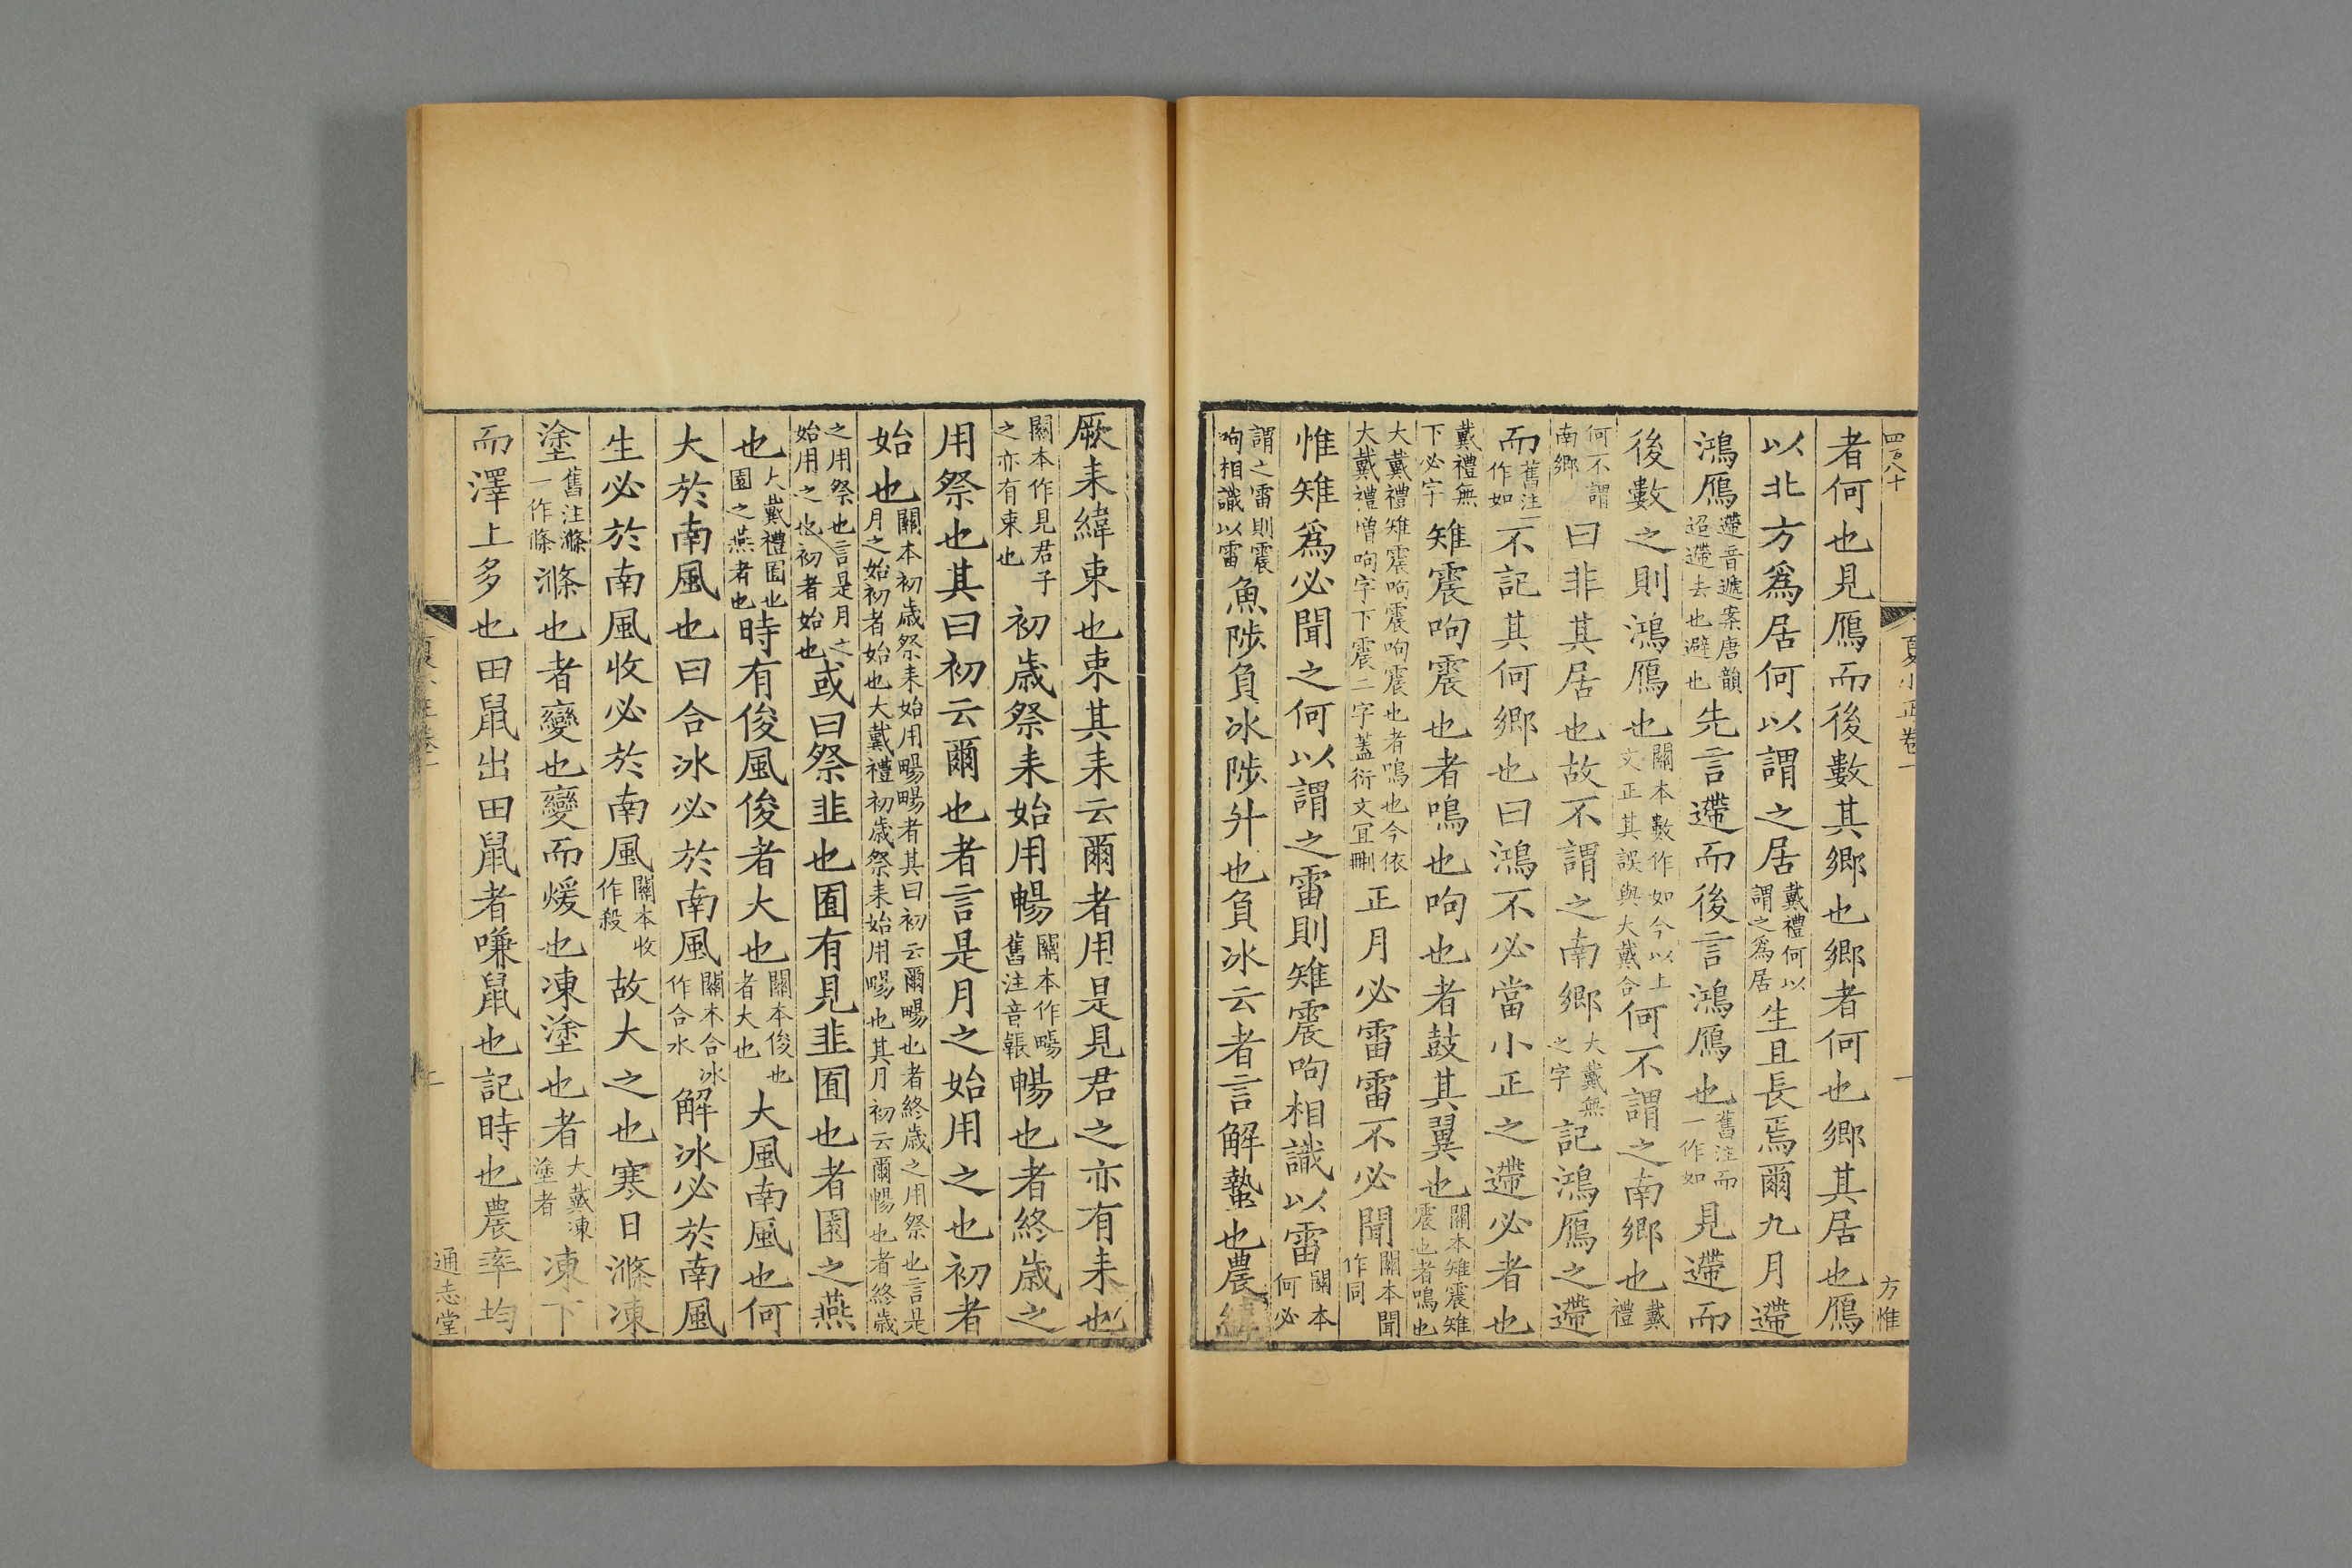 四百八十
夏小正卷一
一
方惟
者何也見鴈而後數其鄉也鄉者何也鄉其居也鴈
以北方爲居何以謂之居戴禮何以謂之爲居生且長焉爾九月遰
鴻鴈遰音遞案唐韻迢遰去也避也先言遰而後言鴻鴈也舊注而一作如見遰而
後數之則鴻鴈也關本數作如今以上文正其誤與大戴合何不謂之南鄉也戴禮
何不謂南鄉曰非其居也故不謂之南鄉大戴無之字記鴻鴈之遰
而舊注一作如不記其何鄉也曰鴻不必當小正之遰必者也
戴禮無下必字雉震呴震也者鳴也呴也者鼓其翼也關本雉震雉震也者鳴也
大戴禮雉震呴震呴震也者鳴也今依大戴禮增呴字下震二字蓋衍文冝刪正月必雷雷不必聞關本聞作同
惟雉爲必聞之何以謂之雷則雉震呴相識以雷關本何必
謂之雷則震呴相識以雷魚陟負冰陟升也負冰云者言解蟄也農緯
厥耒緯束也束其耒云爾者用是見君之亦有耒也
關本作見君子之亦有束也初歲祭耒始用暢關本作畼舊注音韔暢也者終歲之
用祭也其曰初云爾也者言是月之始用之也初者
始也關本初歲祭耒始用畼畼者其曰初云爾畼也者終歲之用祭也言是月之始初者始也大戴禮初歲祭耒始用畼也其月初云爾暢也者終歲
之用祭也言是月之始用之也初者始也或曰祭韭也囿有見韭囿也者園之燕
也大戴禮囿也園之燕者也時有俊風俊者大也關本俊也者大也大風南風也何
大於南風也曰合冰必於南風關本合冰作合水解冰必於南風
生必於南風收必於南風關本收作殺故大之也寒日滌凍
塗舊注滌一作條滌也者變也變而煖也凍塗也者大戴凍塗者凍下
而澤上多也田鼠出田鼠者嗛鼠也記時也農率均
通志堂